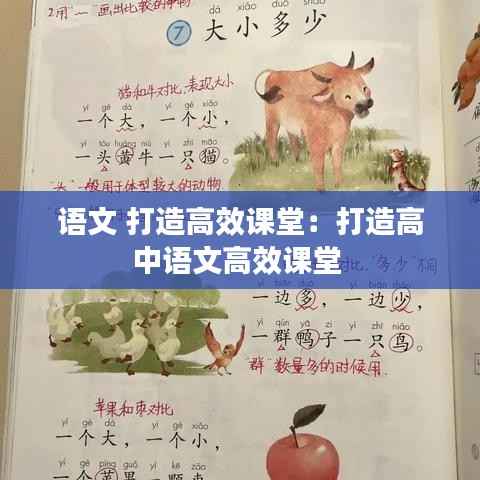 2.用"一"画出比较的事物
dà xiǎo duō shǎo
7 大小多少
猫和牛对比,表现大小
yí gè dà yí gè xiǎo
一个大，一个小，
yì tóu huáng niú yì zhī māo
一头黄牛一只猫。
"头"一般用于体型较大的动物
语文 打造高效课堂：打造高
中语文高效课堂
"多少"相
yì biān duō yì biān shǎo
一边多，一边少，
yì qún yā zi yì zhī niǎo
一群鸭子一只鸟。
"群"数量多的时候用
苹果和枣对比
yí gè dà yí gè xiǎo
一个大，一个小，
yí gè píng guǒ yì kē zǎo
一个苹果一颗枣